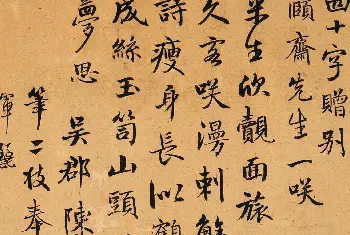 四十字贈别
頤齋先生一咲
米生欣覿面旅
久客咲漫刺
詩瘦身長似鶴
成絲玉笥山頭
夢思
吳郡陳
筆二枝奉